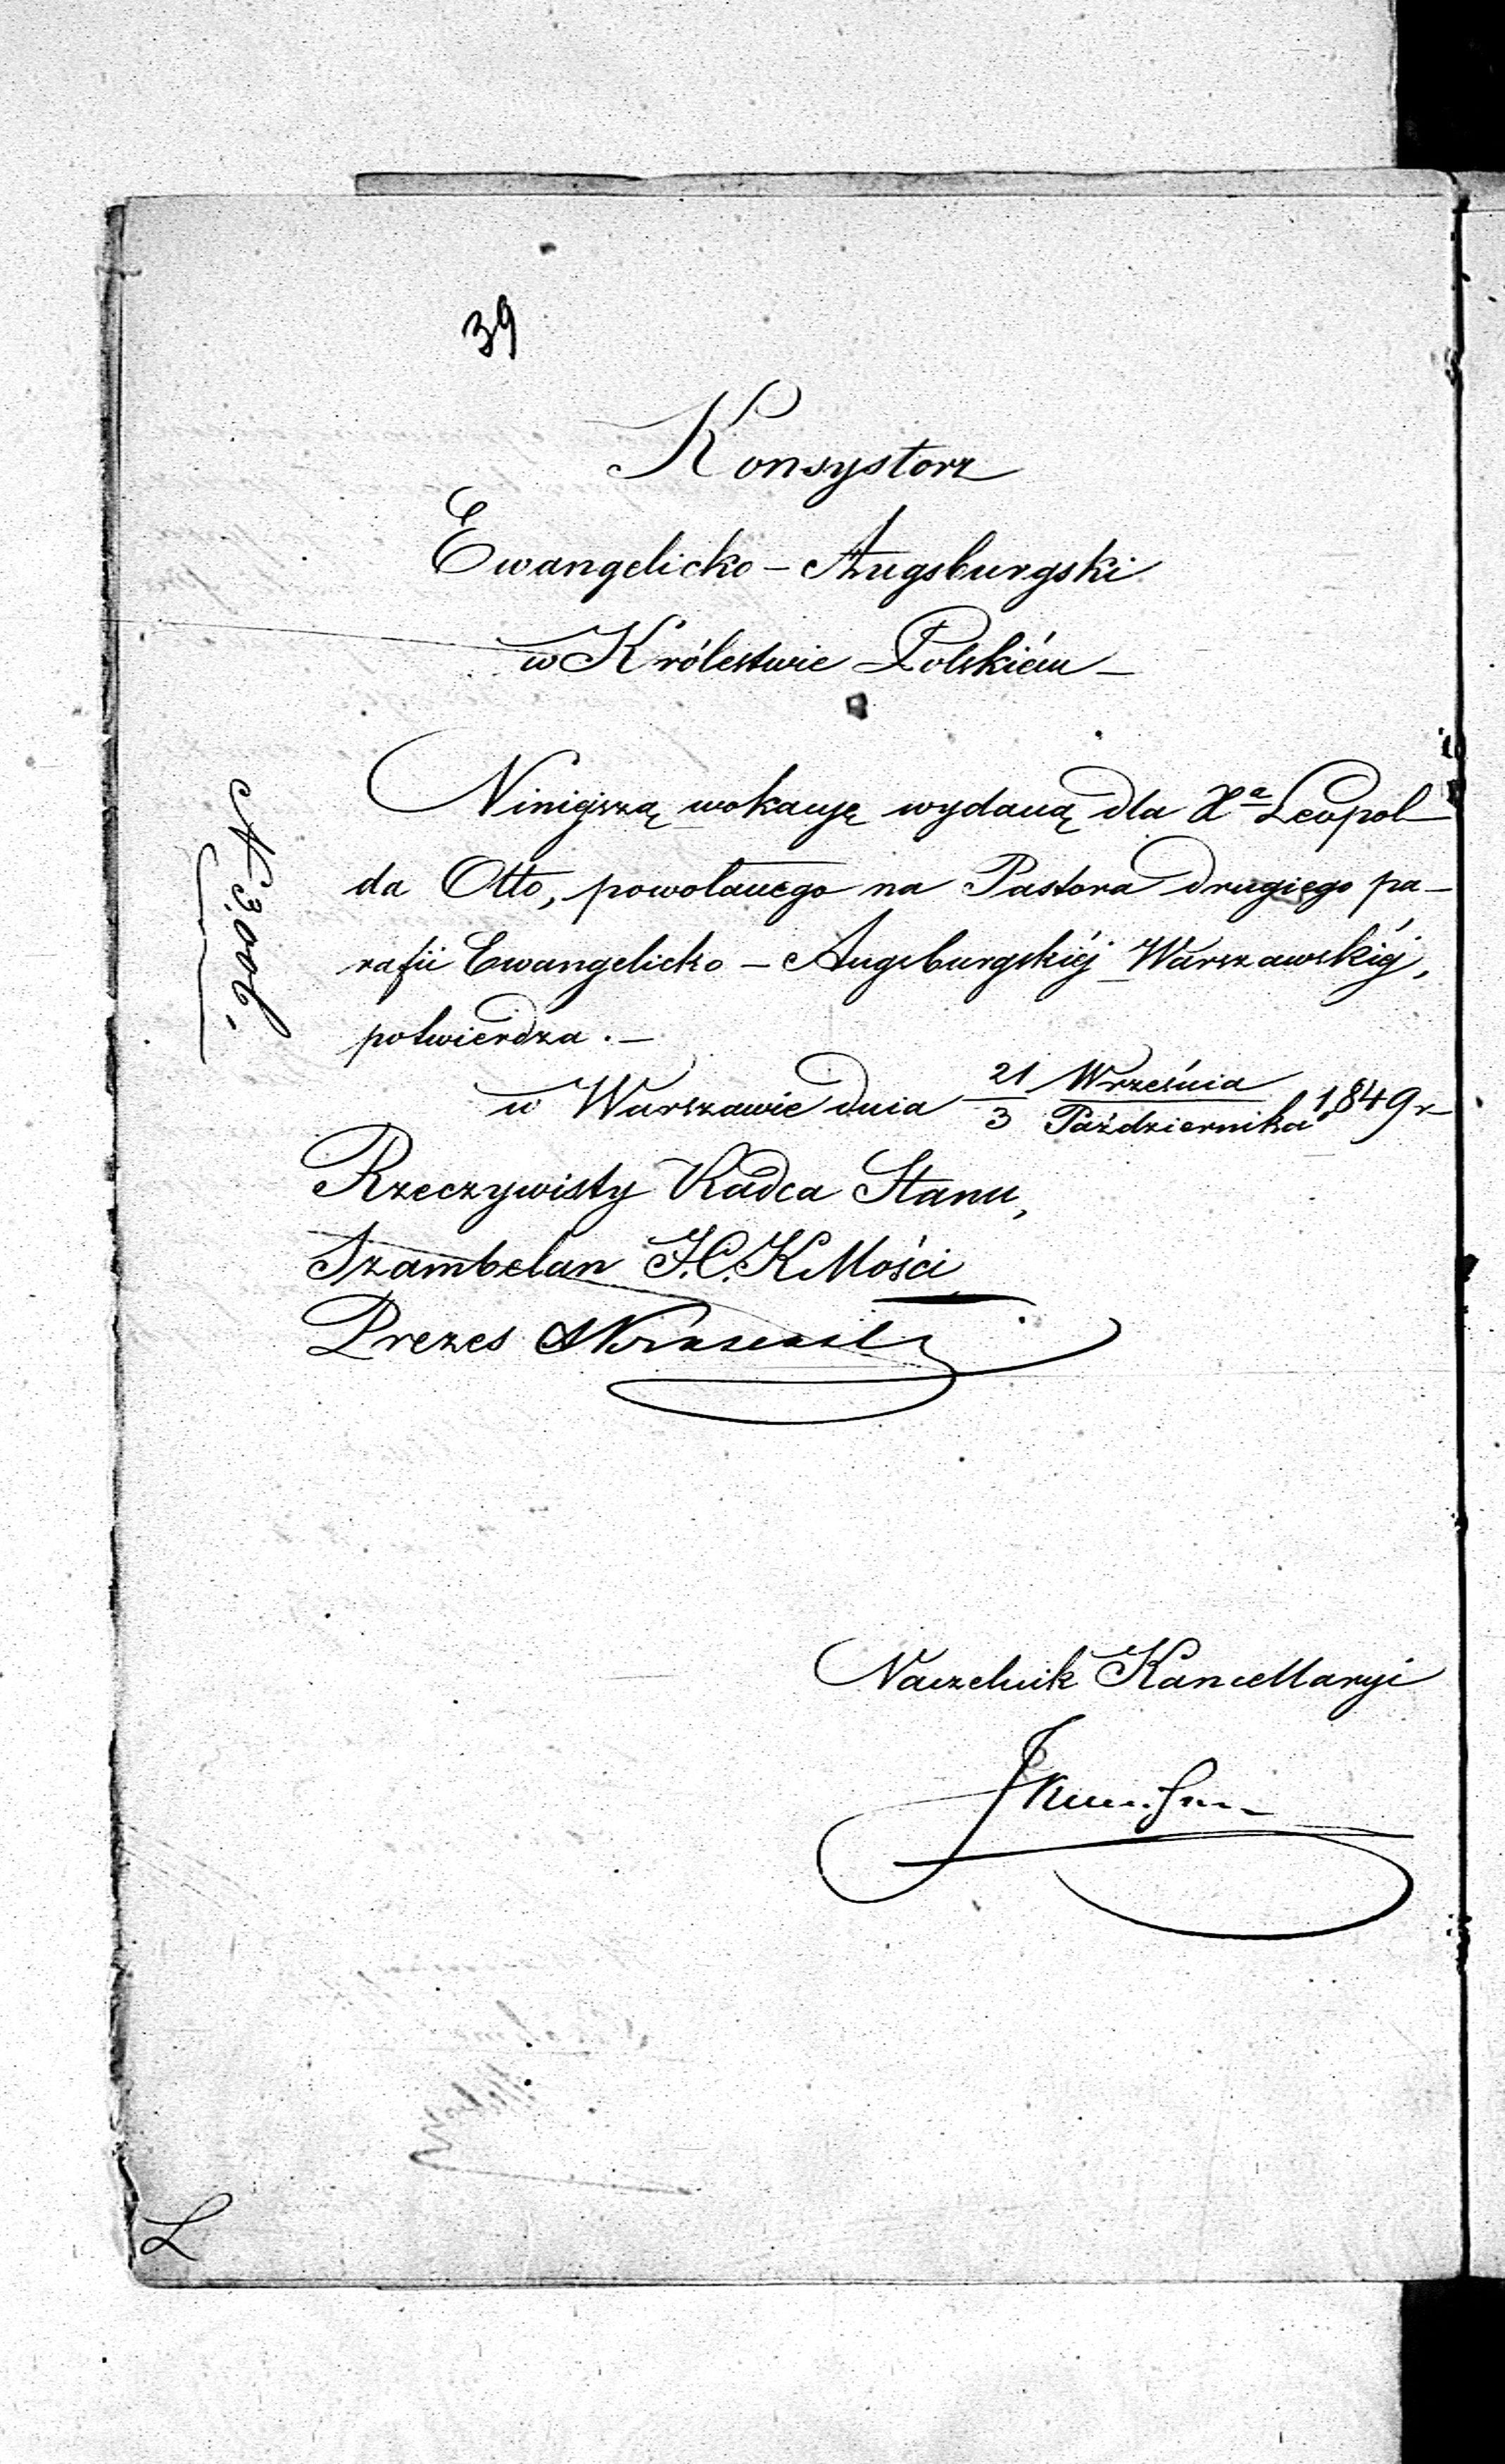 39
Konsystorz
Ewangelicko - Augsburgski
w Królestwie Polskiém -
Niniejszą wokacyę wydaną dla Xa Leopol
da Otto, powołanego na Pastora drugiego pa-
rafii Ewangelicko - Augsburgskiéj Warszawskiéj,
potwierdza. -
w Warszawie dnia 21/3 Września/Października 1849 r
Rzeczywisty Radca Stanu,
Szambelan J.C.K Mości
Prezes
Naczelnik Kancellaryi
L